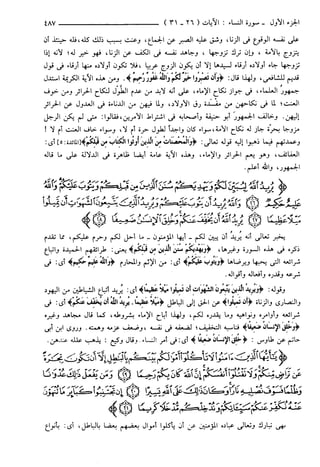 الجزء الأول - سورة النساء : الآيات ( ٢٦ - ٣١ ) ٤٨٧
على نفسه الوقوع في الزنا، وشق عليه الصبر عن الجماع، وعنت بسبب ذلك كله، فله حينئذ أن
يتزوج بالأمة ، وإن ترك تزوجها ، وجاهد نفسه في الكف عن الزنا، فهو خير له؛ لأنه إذا
تزوجها جاء أولاده أرقاء لسيدها إلا أن يكون الزوج عربيا ، فلا تكون أولاده منها أرقاء في قول
قديم للشافعي، ولهذا قال: ﴿وَأَن تَصْبِرُوا خَيْرٌ لَّكُمْ وَاللَّهُ غَفُورٌ رَّحِيمٌ﴾. ومن هذه الآية الكريمة استدل
جمهور العلماء، في جواز نكاح الإماء، على أنه لابد من عدم الطول لنكاح الحرائر ومن خوف
العنت؛ لما في نكاحهن من مفسدة رق الأولاد، ولما فيهن من الدناءة في العدول عن الحرائر
إليهن. وخالف الجمهور أبو حنيفة وأصحابه في اشتراط الأمرين، فقالوا: متى لم يكن الرجل
مزوجا بحرة جاز له نكاح الأمة، سواء كان واجداً لطول حرة أم لا، وسواء خاف العنت أم لا !
وعمدتهم فيما ذهبوا إليه قوله تعالى: ﴿وَالْمُحْصَنَاتُ مِنَ الَّذِينَ أُوتُوا الْكِتَابَ مِن قَبْلِكُمْ﴾ [المائدة: ٥] أي:
العفائف، وهو يعم الحرائر والإماء، وهذه الآية عامة أيضا ظاهرة في الدلالة على ما قاله
الجمهور، والله أعلم.
يُرِيدُ اللَّهُ لِيُبَيِّنَ لَكُمْ وَيَهْدِيَكُمْ سُنَنَ الَّذِينَ مِن قَبْلِكُمْ وَيَتُوبَ عَلَيْكُمْ وَاللَّهُ عَلِيمٌ حَكِيمٌ
﴿٢٦﴾ وَاللَّهُ يُرِيدُ أَن يَتُوبَ عَلَيْكُمْ وَيُرِيدُ الَّذِينَ يَتَّبِعُونَ الشَّهَوَاتِ أَن تَمِيلُوا مَيْلًا عَظِيمًا
﴿٢٧﴾ يُرِيدُ اللَّهُ أَن يُخَفِّفَ عَنكُمْ وَخُلِقَ الْإِنسَانُ ضَعِيفًا ﴿٢٨﴾
يخبر تعالى أنه يريد أن يبين لكم - أيها المؤمنون - ما أحل لكم وحرم عليكم، مما تقدم
ذكره في هذه السورة وغيرها، ﴿وَيَهْدِيَكُمْ سُنَنَ الَّذِينَ مِن قَبْلِكُمْ﴾ يعنى: طرائقهم الحميدة واتباع
شرائعه التي يحبها ويرضاها ﴿وَيَتُوبَ عَلَيْكُمْ﴾ أي: من الإثم والمحارم ﴿وَاللَّهُ عَلِيمٌ حَكِيمٌ﴾ أي: في
شرعه وقدره وأفعاله وأقواله.
وقوله: ﴿وَيُرِيدُ الَّذِينَ يَتَّبِعُونَ الشَّهَوَاتِ أَن تَمِيلُوا مَيْلًا عَظِيمًا﴾ أي: يُريد أتباع الشياطين من اليهود
والنصارى والزناة ﴿أَن تَمِيلُوا﴾ عن الحق إلى الباطل ﴿مَيْلًا عَظِيمًا. يُرِيدُ اللَّهُ أَن يُخَفِّفَ عَنكُمْ﴾ أي: في
شرائعه وأوامره ونواهيه وما يقدره لكم، ولهذا أباح الإماء بشروطه، كما قال مجاهد وغيره
﴿وَخُلِقَ الْإِنسَانُ ضَعِيفًا﴾ فناسبه التخفيف؛ لضعفه في نفسه ، وضعف عزمه وهمته. وروى ابن أبي
حاتم عن طاوس : ﴿خُلِقَ الْإِنسَانُ ضَعِيفًا﴾ أي: في أمر النساء. وقال وكيع : يذهب عقله عندهن.
يَا أَيُّهَا الَّذِينَ آمَنُوا لَا تَأْكُلُوا أَمْوَالَكُم بَيْنَكُم بِالْبَاطِلِ إِلَّا أَن تَكُونَ تِجَارَةً
عَن تَرَاضٍ مِّنكُمْ وَلَا تَقْتُلُوا أَنفُسَكُمْ إِنَّ اللَّهَ كَانَ بِكُمْ رَحِيمًا ﴿٢٩﴾ وَمَن يَفْعَلْ ذَٰلِكَ عُدْوَانًا
وَظُلْمًا فَسَوْفَ نُصْلِيهِ نَارًا وَكَانَ ذَٰلِكَ عَلَى اللَّهِ يَسِيرًا ﴿٣٠﴾ إِن تَجْتَنِبُوا كَبَائِرَ مَا تُنْهَوْنَ
عَنْهُ نُكَفِّرْ عَنكُمْ سَيِّئَاتِكُمْ وَنُدْخِلْكُم مُّدْخَلًا كَرِيمًا ﴿٣١﴾
نهى تبارك وتعالى عباده المؤمنين عن أن يأكلوا أموال بعضهم بعضا بالباطل، أي: بأنواع